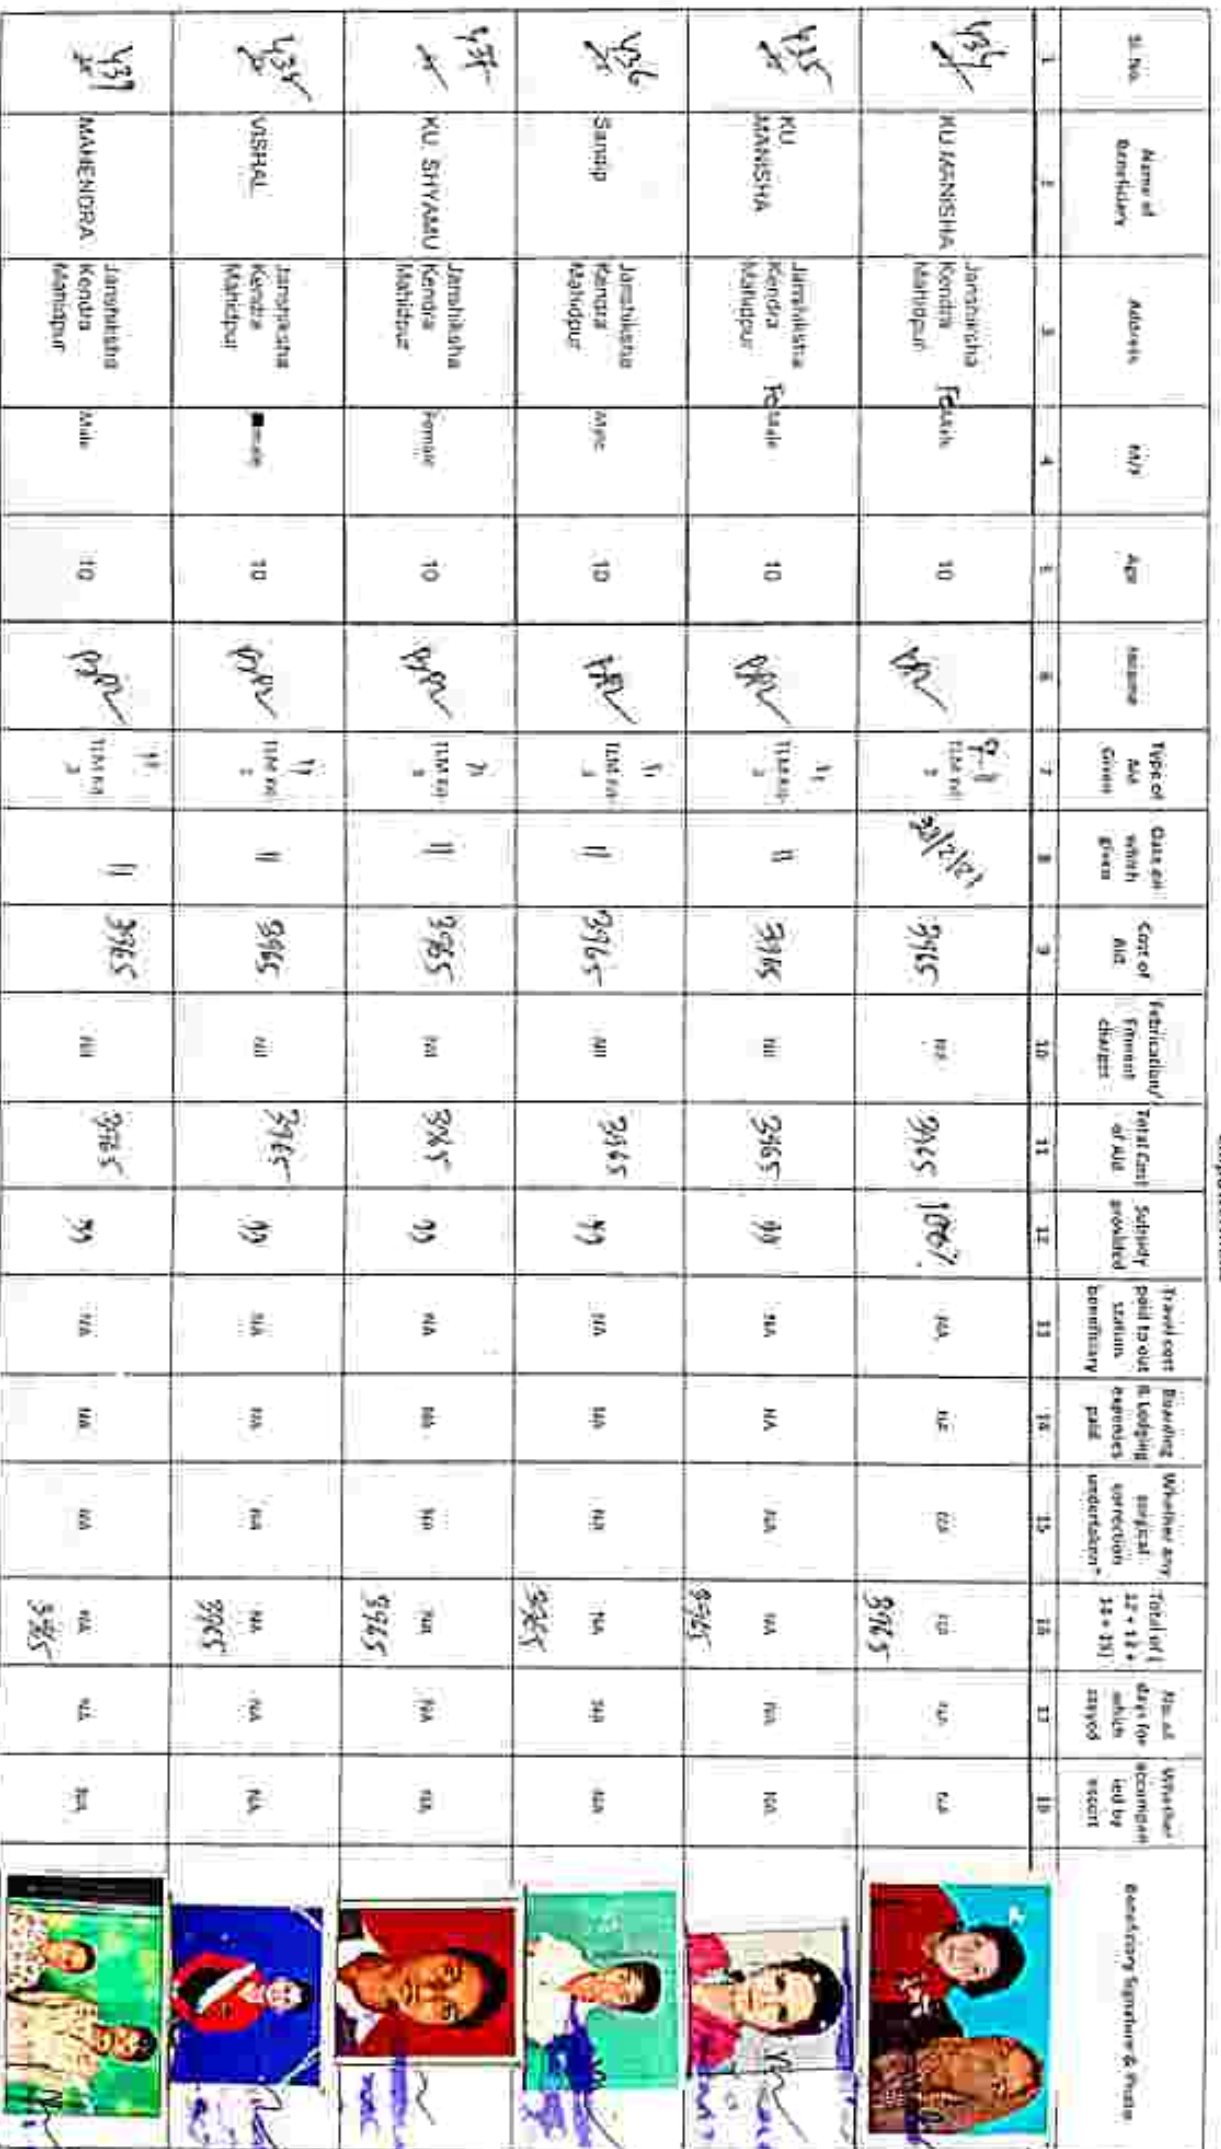 Sl. No.
Name of
Beneficiary
Address
M/F
Age
Income
Type of
Aid
Given
Date on
which
given
Cost of
Aid
Febrication/
Fitment
charges
Total Cost
of Aid
Subsidy
provided
Travel cost
paid to out
station
beneficiary
Boarding
& Lodging
expenses
paid
Whether any
surgical
correction
undertaken*
Total of (
12 + 13 +
14 + 15)
No. of
days for
which
stayed
Whether
accompan
ied by
escort
Beneficiary Signature & Photo
1 2 3 4 5 6 7 8 9 10 11 12 13 14 15 16 17 18
434
KU.MANISHA
Janshiksha
Kendra
Mahidpur
Female
10
TLM Kit
3965
NA
3965
100%
NA
NA
NA
NA
3965
NA
NA
435
KU
MANISHA
Janshiksha
Kendra
Mahidpur
Female
10
TLM Kit
11
3965
Nil
3965
NA
NA
NA
NA
3965
NA
NA
436
Sandip
Janshiksha
Kendra
Mahidpur
Male
10
TLM Kit
11
3965
Nil
3965
NA
NA
NA
NA
3965
NA
NA
437
KU. SHYAMU
Janshiksha
Kendra
Mahidpur
Female
10
TLM Kit
11
3965
Nil
3965
NA
NA
NA
NA
3965
NA
NA
438
VISHAL
Janshiksha
Kendra
Mahidpur
male
10
TLM Kit
11
3965
Nil
3965
NA
NA
NA
NA
3965
NA
NA
439
MAHENDRA
Janshiksha
Kendra
Mahidpur
Male
10
TLM Kit
11
3965
Nil
3965
NA
NA
NA
NA
3965
NA
NA